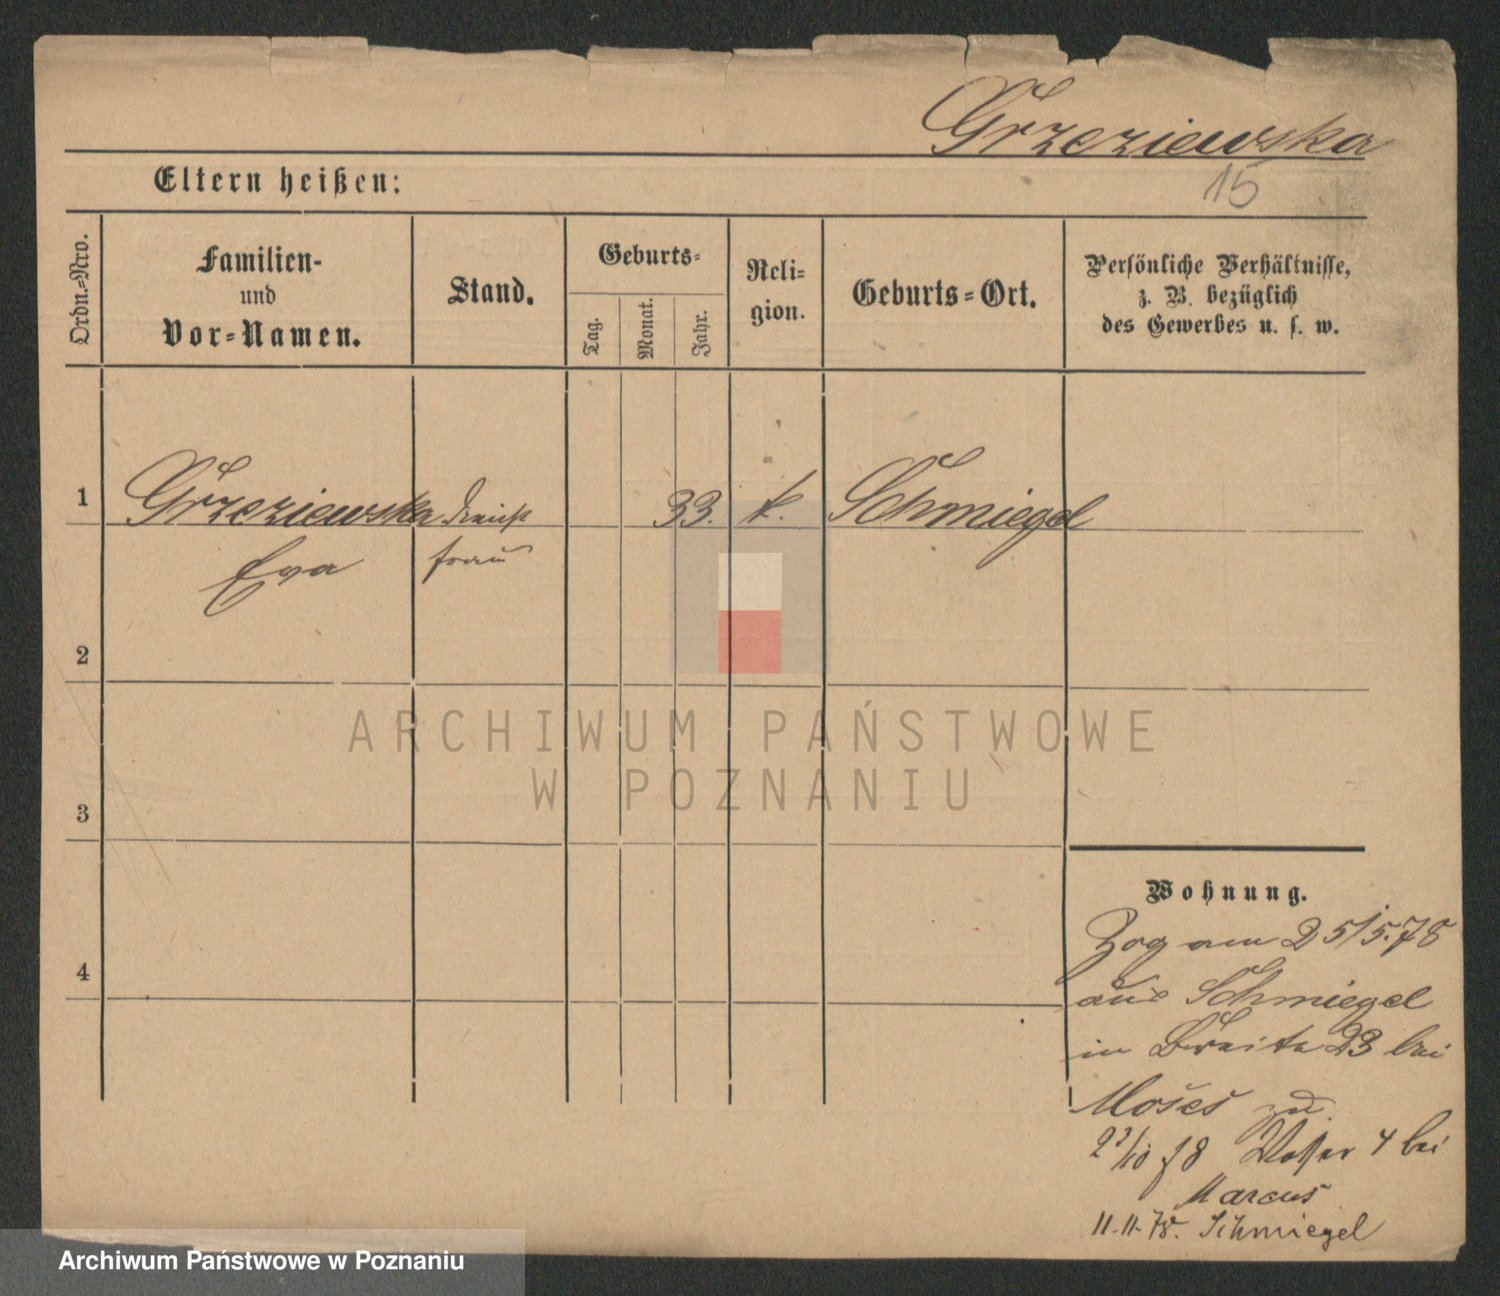 Grzeziewska
15
Eltern heißen:
Ordn.-Nro.
Familien-
und
Vor-Namen.
Stand.
Geburts-
Tag.
Monat.
Jahr.
Reli-
gion.
Geburts-Ort.
Persönliche Verhältnisse,
z. B. bezüglich
des Gewerbes u. s. w.
1
Grzeziewska
33.
k.
Schmiegel
Eva
frau
2
ARCHIWUM PAŃSTWOWE
W POZNANIU
3
Wohnung.
Zog am 25/5.78
4
aus Schmiegel
in Breite 23 bei
Moses zu.
/10 78 Wasser 4 bei
Marcus
11.11.78. Schmiegel
Archiwum Państwowe w Poznaniu